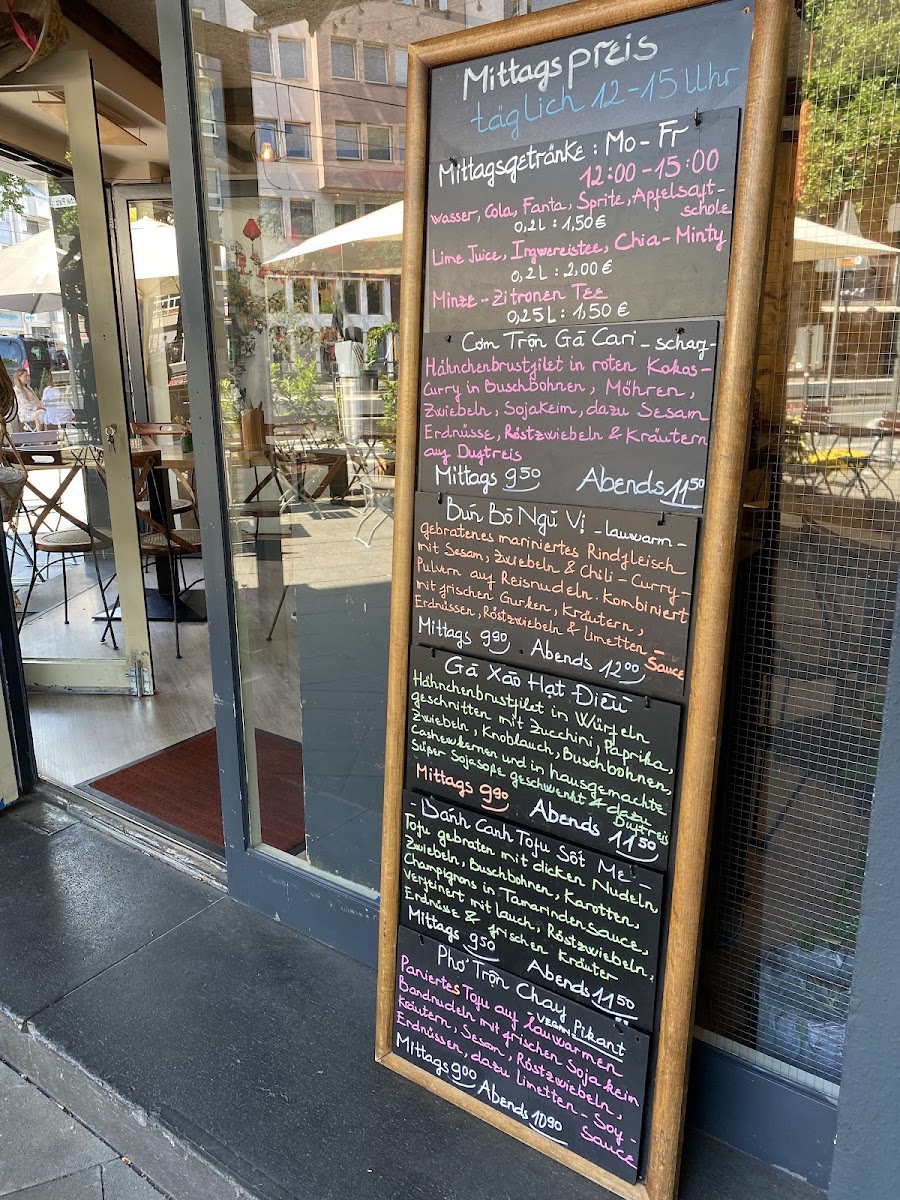 Mittagspreis
täglich 12-15 Uhr
Mittagsgetränke: Mo-Fr
12:00-15:00
Wasser, Cola, Fanta, Sprite, Apfelsaft-
schole
0,2L: 1,50€
Lime Juice, Ingwereistee, Chia-Minty
0,2L: 2,00€
Minze-Zitronen Tee
0,25L: 1,50€
Cơm Trộn Gà Cari - scharf-
Hähnchenbrustfilet in roten Kokos-
Curry in Buschbohnen, Möhren,
Zwiebeln, Sojakeim, dazu Sesam
Erdnüsse, Röstzwiebeln & Kräutern
auf Duftreis
Mittags 9⁵⁰ Abends 11⁵⁰
Bún Bò Ngũ Vị - lauwarm -
gebratenes mariniertes Rindfleisch
mit Sesam, Zwiebeln & Chili-Curry-
Pulvern auf Reisnudeln. Kombiniert
mit frischen Gurken, Kräutern,
Erdnüssen, Röstzwiebeln & limetten-
Sauce
Mittags 9⁹⁰ Abends 12⁰⁰
Gà Xào Hạt Điều
Hähnchenbrustfilet in Würfeln
geschnitten mit Zucchini, Paprika,
Zwiebeln, Knoblauch, Buschbohnen,
Cashewkernen und in hausgemachte
Süßer Sojasoße geschwenkt & dazu
Duftreis
Mittags 9⁹⁰ Abends 11⁵⁰
- Bánh Canh Tofu Sốt Me -
Tofu gebraten mit dicken Nudeln,
Zwiebeln, Buschbohnen, Karotten,
Champignons in Tamarindensauce,
verfeinert mit lauch, Röstzwiebeln,
Erdnüsse & frischen Kräuter
Mittags 9⁵⁰ Abends 11⁵⁰
Phở Trộn Chay
- VEGAN Pikant
Paniertes Tofu auf lauwarmen
Bandnudeln mit frischen Sojakeim
Kräutern, Sesam, Röstzwiebeln,
Erdnüssen, dazu limetten-Soy-
Sauce
Mittags 9⁰⁰ Abends 10⁹⁰